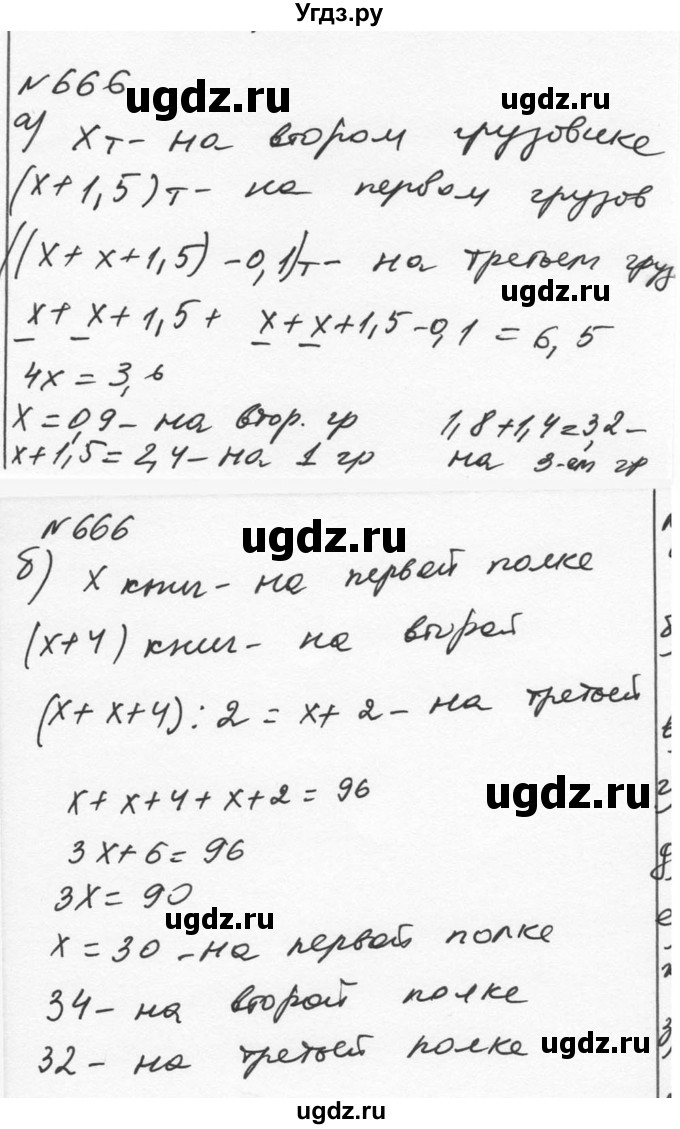 Угдз.ру
№666
ugdz.ru ugdz.ru
а) x т - на втором грузовике
(x+1,5) т - на первом грузов
((x+x+1,5)-0,1) т - на третьем груз
ugdz.ru
x+x+1,5+ x+x+1,5-0,1=6,5
4x=3,6
x=0,9 - на втор. гр 1,8+1,4=3,2 -
x+1,5=2,4 - на 1 гр на 3-ем гр
№666
ugdz.ru
б) x книг - на первой полке
(x+4) книг - на второй
(x+x+4):2=x+2 - на третьей
x+x+4+x+2=96
ugdz.ru
3x+6=96
3x=90
ugdz.ru
x=30 - на первой полке
34 - на второй полке
32 - на третьей полке
ugdz.ru
ugdz.ru